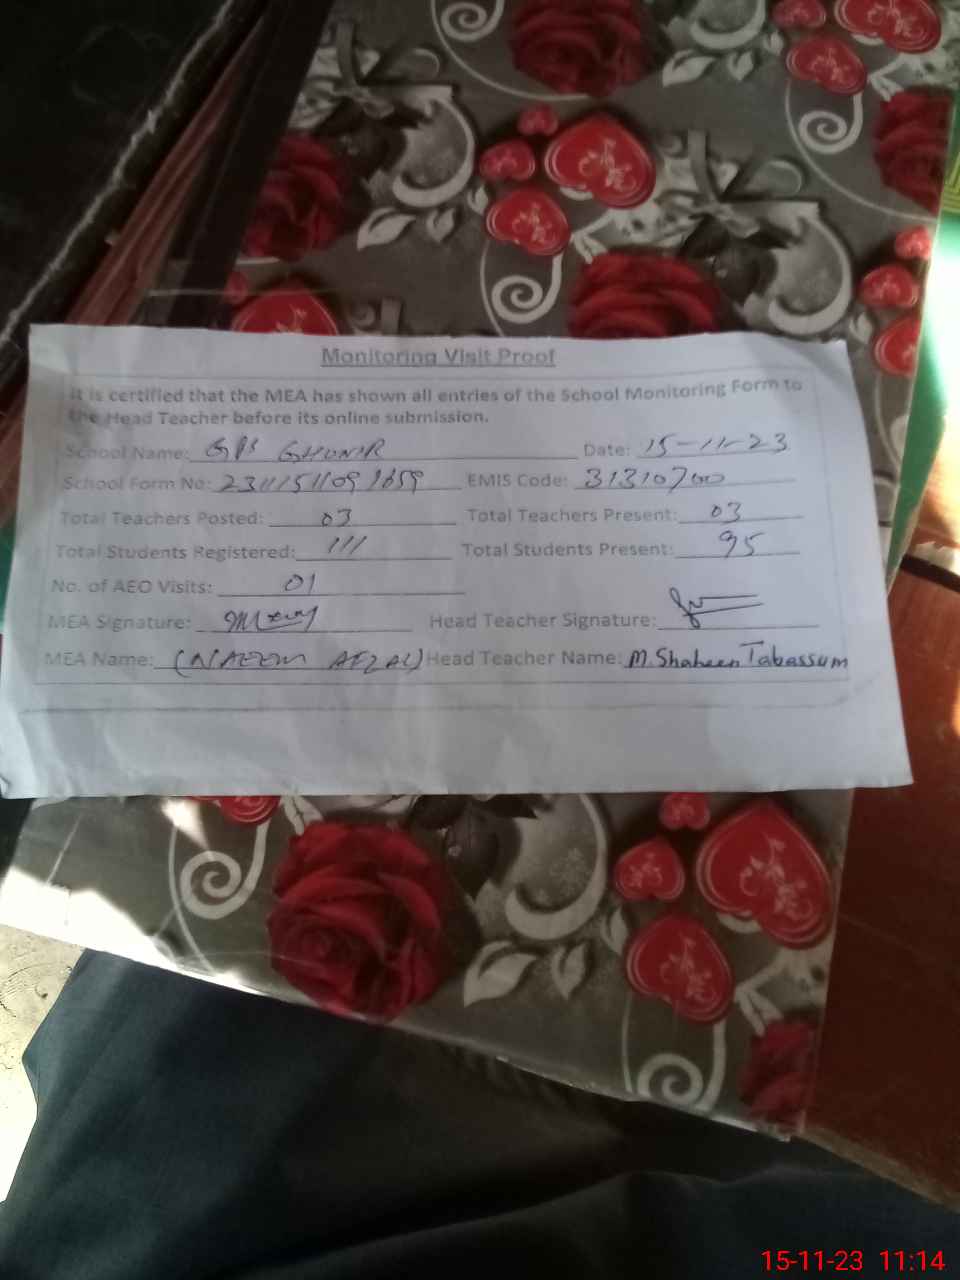 Monitoring Visit Proof
It is certified that the MEA has shown all entries of the School Monitoring Form to
the Head Teacher before its online submission.
School Name: GPS GHUNIR Date: 15-11-23
School Form No: EMIS Code: 31310700
Total Teachers Posted: 03 Total Teachers Present: 03
Total Students Registered: 111 Total Students Present: 95
No. of AEO Visits: 01
MEA Signature: Head Teacher Signature:
MEA Name: (NAEEM AFZAL) Head Teacher Name: M. Shaheen Tabassum
15-11-23 11:14